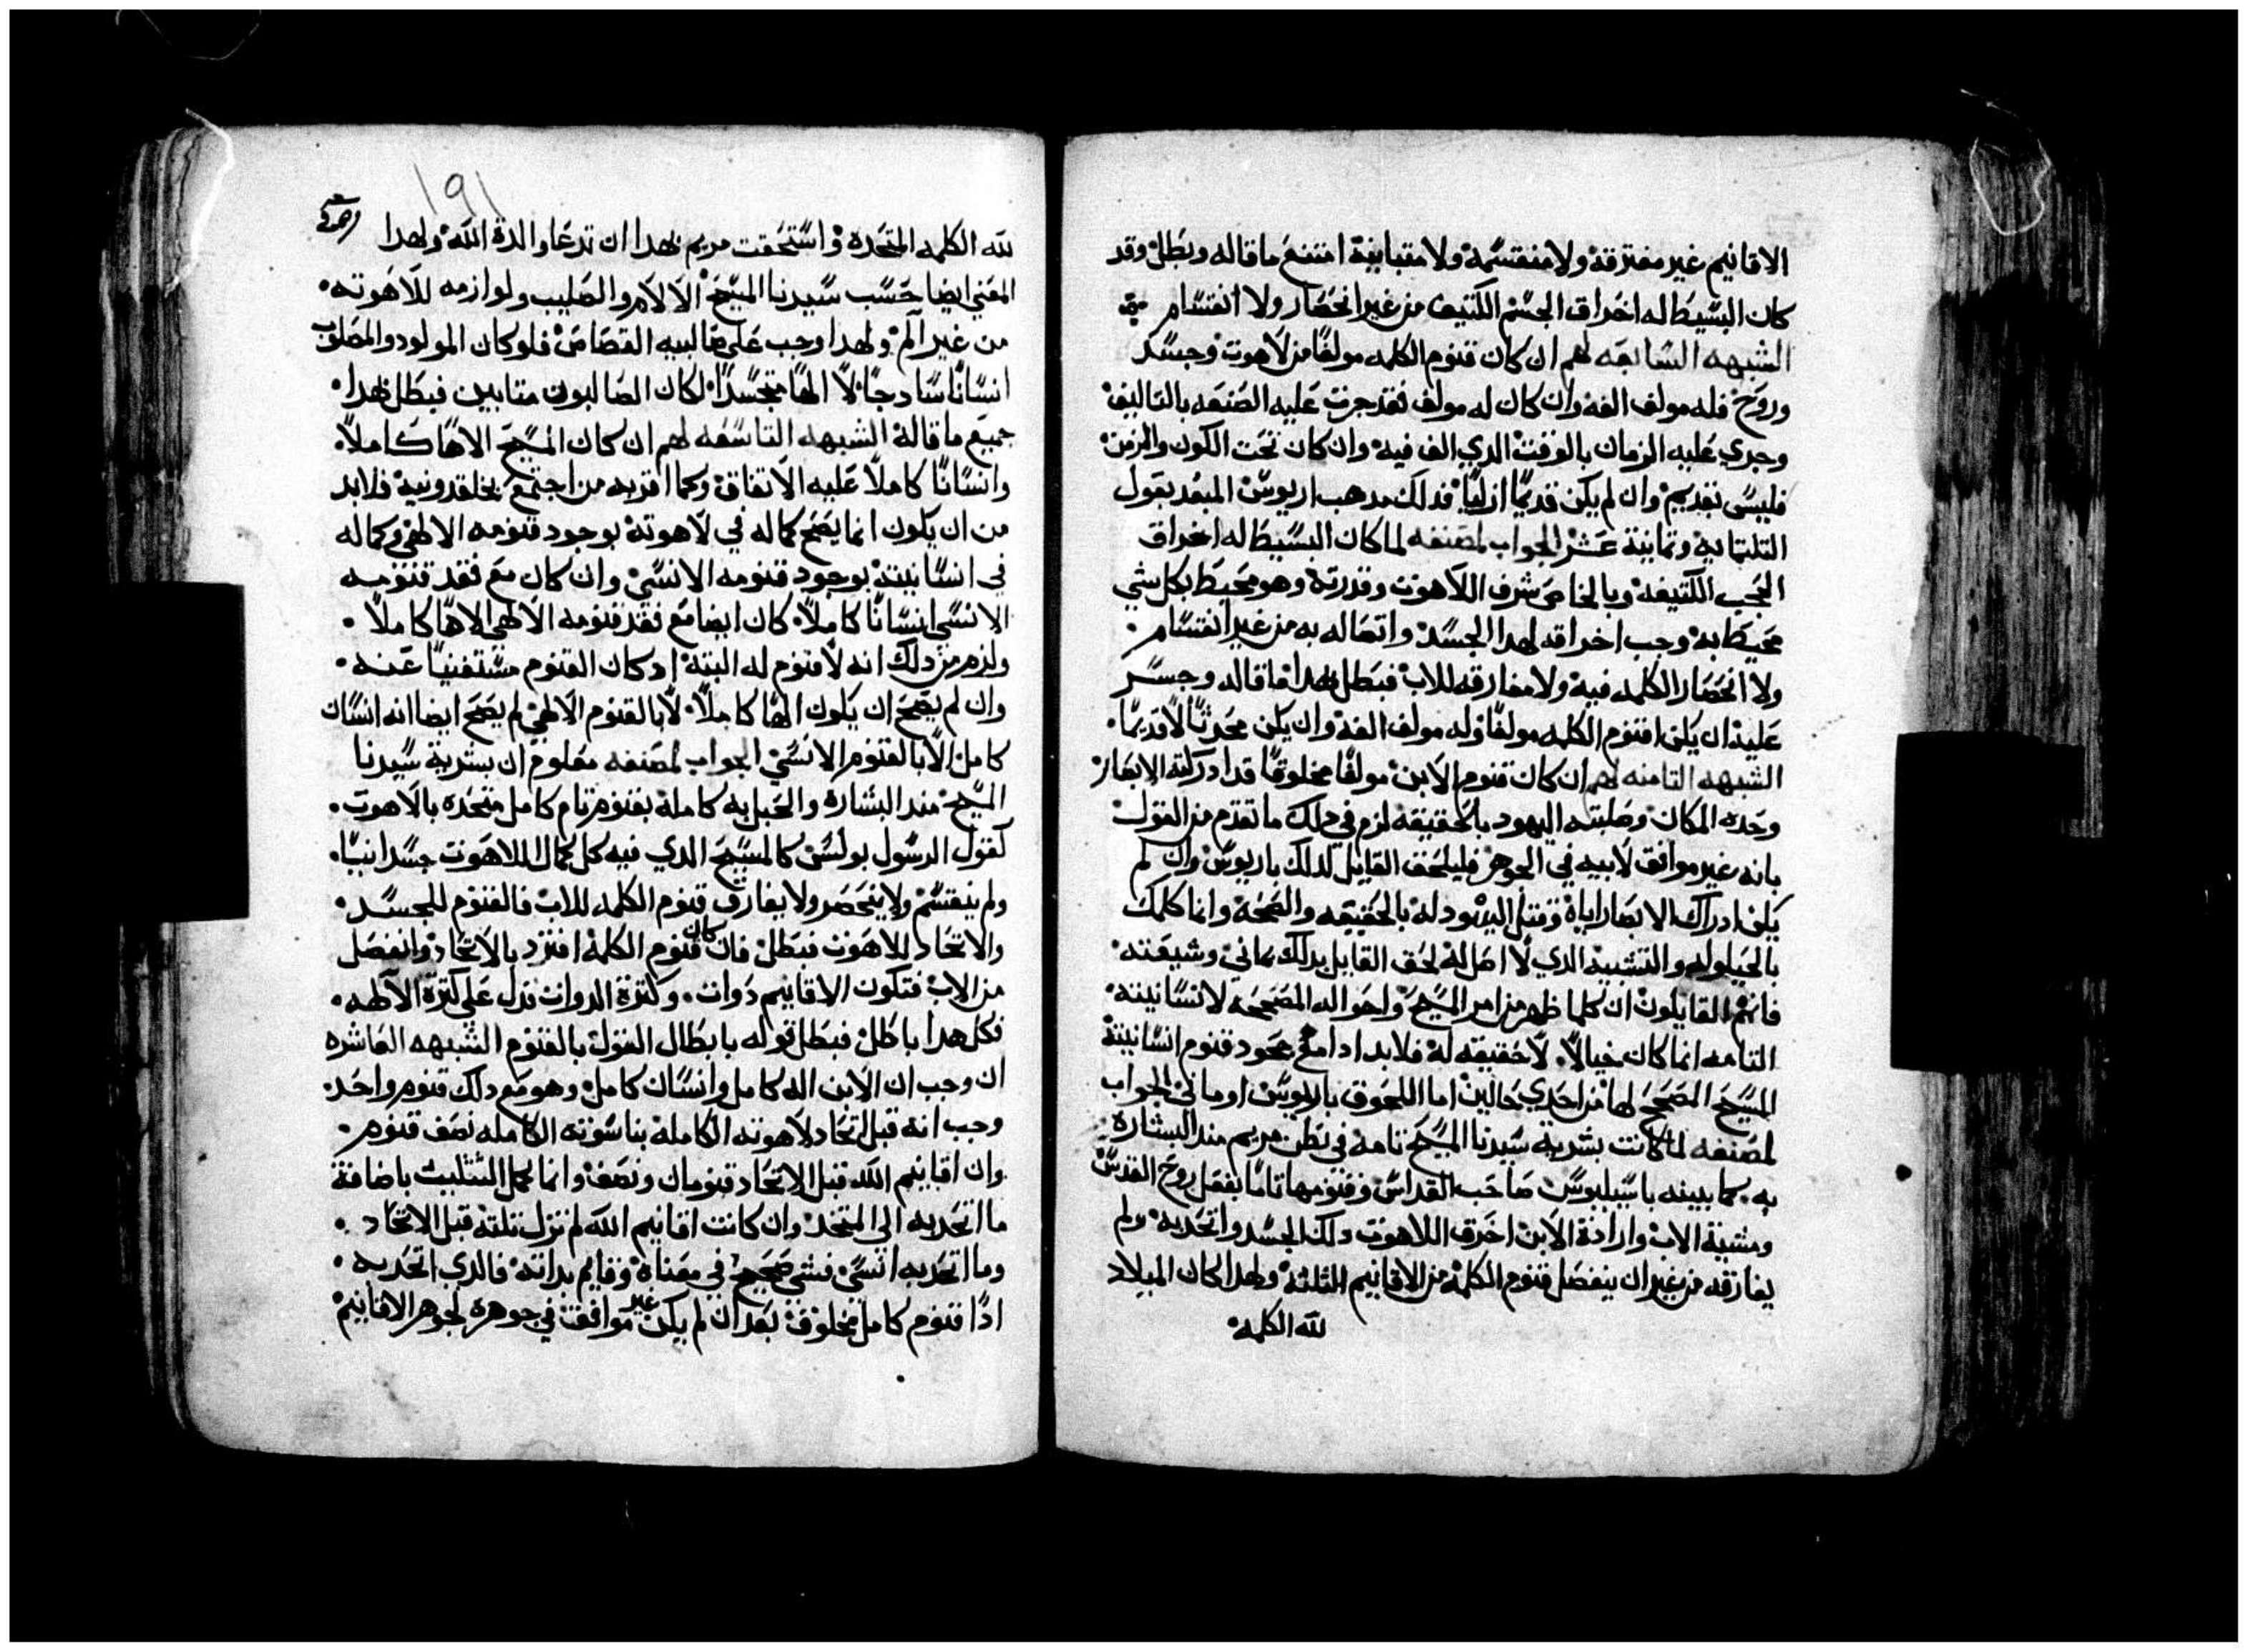 الاقانيم غير مفترقة ولا منقسمة ولا متباينة امتنع ما قاله وبطل وقد
كان البسيط له اخراق الجسم الكتيف من غير انحصار ولا انقسام
الشبهه السابعه لهم ان كان قنوم الكلمه مولفًا من لاهوت وجسد
وروح فله مولف الفه وان كان له مولف فقد جرت عليه الصنعه بالتاليف
وجري عليه الزمان بالوقت الدي الف فيه وان كان تحت الكون والزمن
فليس بقديم وان لم يكن قديمًا ازليًا فدلك مدهب اريوس المبعد بقول
التلتمايه وتمانية عشر الجواب لمصنفه لما كان البسيط له اخراق
الحجب الكتيفه وبالخاص شرف اللاهوت وقدرته وهو محيط بكل شي
محيط به وجب اخراقه لهدا الجسد واتصاله به من غير انقسام
ولا انحصار الكلمه فيه ولا مفارقه للاب فبطل بهدا ما قاله وجسر
عليه ان يكن قنوم الكلمه مولفًا وله مولف الفه وان يكن محدثًا لا قديمًا
الشبهه التامنه لهم ان كان قنوم الابن مولفًا مخلوقًا قد ادركته الابصار
وحده المكان وصلبته اليهود بالحقيقه لزم في دلك ما تقدم من القول
بانه غير موافق لابيه في الجوهر فليلحق القايل لدلك باريوس وان لم
يكن ادراك الابصار اياه وقتل اليهود له بالحقيقه والصحه وانما كلمك
بالحيلوله والتشبيه الدي لا اصل له لحق القايل بدلك بماني وشيعته
فانهم القايلون ان كلما ظهر من امر المسيح واحواله المصححة لانسانيته
التامه انما كان خيالاً لا حقيقه له فلا بد ادا مع جحود قنوم انسانيتة
المسيح المصحح لها من احدي حالين اما اللحوق باريوس او ماني الجواب
لمصنفه لما كانت بشرية سيدنا المسيح تامه في بطن مريم مند البشارة
به كما بينه باسيليوس صاحب القداس وقنومها تامًا بفعل روح القدس
ومشية الاب وارادة الابن اخرق اللاهوت دلك الجسد واتحد به ولم
يفارقه من غير ان ينفصل قنوم الكلمه من الاقانيم التلته ولهدا كان الميلاد
لله الكلمه
١٩١
لله الكلمه المتحده واستحقت مريم بهدا ان تدعا والدة الله ولهدا
المعني ايضا حسب سيدنا المسيح الالام والصليب ولوازمه للاهوته
من غير الم ولهدا وجب علي صالبيه القصاص فلو كان المولود والمصلوب
انسانًا سادجًا لا الهًا متجسدًا لكان الصالبون متابين فبطل بهدا
جميع ما قاله الشبهه التاسعه لهم ان كان المسيح الاهًا كاملاً
وانسانًا كاملاً عليه الاتفاق وكما اقر به من اجتمع بخلقدونية فلا بد
من ان يكون انما يصح كماله في لاهوته بوجود قنومه الالهي وكماله
في انسانيته بوجود قنومه الانسي وان كان مع فقد قنومه
الانسي انسانًا كاملاً كان ايضا مع فقد قنومه الالهي الاهًا كاملاً
ولزم من دلك انه لا قنوم له البتة اد كان القنوم مستغنيًا عنه
وان لم يصح ان يكون الهًا كاملاً الا بالقنوم الالهي لم يصح ايضا انه انسان
كامل الا بالقنوم الانسي الجواب لمصنفه معلوم ان بشرية سيدنا
المسيح مند البشاره والحبل به كاملة بقنوم تام كامل متحده بالاهوت
كقول الرسول بولس كالمسيح الدي فيه كل كمال اللاهوت جسدانيًا
ولم ينقسم ولا ينحصر ولا يفارق قنوم الكلمه للاب فالقنوم للجسد
والاتحاد للاهوت فبطل فان كان قنوم الكلمة انفرد بالاتحاد وانفصل
من الاب فتكون الاقانيم دوات وكترة الدوات تدل علي كترة الالهه
فكل هدا باطل فبطل قوله بابطال القول بالقنوم الشبهه العاشره
ان وجب ان الابن اله كامل وانسان كامل وهو مع دلك قنوم واحد
وجب انه قبل اتحاد لاهوته الكامله بناسوته الكامله نصف قنوم
وان اقانيم الله قبل الاتحاد قنومان ونصف وانما كمل التثليث باضافة
ما اتحد به الي المتحد وان كانت اقانيم الله لم تزل تلته قبل الاتحاد
وما اتحد به انسي فشي صحيح في معناه وقايم بداته فالدي اتحد به
ادًا قنوم كامل مخلوق بعد ان لم يكن غير موافق في جوهره لجوهر الاقانيم